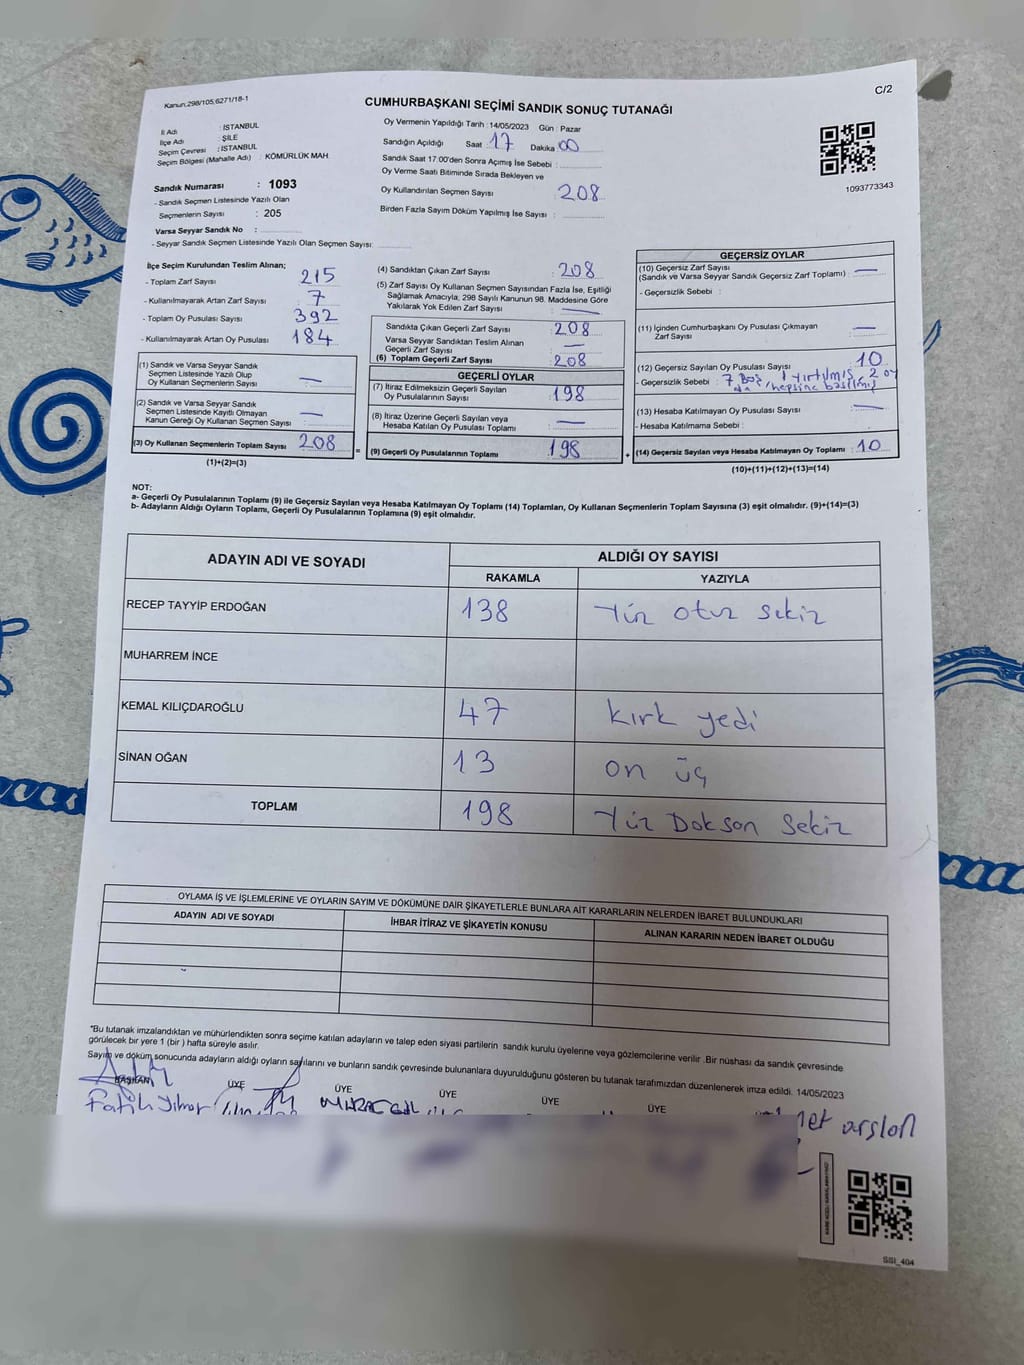 Kanun,298/105,6271/18-1
C/2
CUMHURBAŞKANI SEÇİMİ SANDIK SONUÇ TUTANAĞI
İl Adı : İSTANBUL
İlçe Adı : ŞİLE
Seçim Çevresi : İSTANBUL
Seçim Bölgesi (Mahalle Adı) : KÖMÜRLÜK MAH
Sandık Numarası : 1093
- Sandık Seçmen Listesinde Yazılı Olan
Seçmenlerin Sayısı : 205
Varsa Seyyar Sandık No :
- Seyyar Sandık Seçmen Listesinde Yazılı Olan Seçmen Sayısı:
Oy Vermenin Yapıldığı Tarih : 14/05/2023 Gün : Pazar
Sandığın Açıldığı Saat : 17 Dakika : 00
Sandık Saat 17.00'den Sonra Açımış İse Sebebi :
Oy Verme Saati Bitiminde Sırada Bekleyen ve
Oy Kullandırılan Seçmen Sayısı 208
Birden Fazla Sayım Döküm Yapılmış İse Sayısı :
1093773343
İlçe Seçim Kurulundan Teslim Alınan;
- Toplam Zarf Sayısı 215
- Kullanılmayarak Artan Zarf Sayısı 7
- Toplam Oy Pusulası Sayısı 392
- Kullanılmayarak Artan Oy Pusulası 184
(1) Sandık ve Varsa Seyyar Sandık
Seçmen Listesinde Yazılı Olup
Oy Kullanan Seçmenlerin Sayısı —
(2) Sandık ve Varsa Seyyar Sandık
Seçmen Listesinde Kayıtlı Olmayan
Kanun Gereği Oy Kullanan Seçmen Sayısı —
(3) Oy Kullanan Seçmenlerin Toplam Sayısı 208
(1)+(2)=(3)
(4) Sandıktan Çıkan Zarf Sayısı 208
(5) Zarf Sayısı Oy Kullanan Seçmen Sayısından Fazla İse, Eşitliği
Sağlamak Amacıyla; 298 Sayılı Kanunun 98. Maddesine Göre
Yakılarak Yok Edilen Zarf Sayısı —
Sandıkta Çıkan Geçerli Zarf Sayısı 208
Varsa Seyyar Sandıktan Teslim Alınan
Geçerli Zarf Sayısı —
(6) Toplam Geçerli Zarf Sayısı 208
GEÇERLİ OYLAR
(7) İtiraz Edilmeksizin Geçerli Sayılan
Oy Pusulalarının Sayısı 198
(8) İtiraz Üzerine Geçerli Sayılan veya
Hesaba Katılan Oy Pusulası Toplamı —
= (9) Geçerli Oy Pusulalarının Toplamı 198
GEÇERSİZ OYLAR
(10) Geçersiz Zarf Sayısı
(Sandık ve Varsa Seyyar Sandık Geçersiz Zarf Toplamı) : —
- Geçersizlik Sebebi :
(11) İçinden Cumhurbaşkanı Oy Pusulası Çıkmayan
Zarf Sayısı —
(12) Geçersiz Sayılan Oy Pusulası Sayısı 10
- Geçersizlik Sebebi : 7 Boş 1 yırtılmış, 2 oy
hepsine basılmış
(13) Hesaba Katılmayan Oy Pusulası Sayısı —
- Hesaba Katılmama Sebebi :
+ (14) Geçersiz Sayılan veya Hesaba Katılmayan Oy Toplamı : 10
(10)+(11)+(12)+(13)=(14)
NOT:
a- Geçerli Oy Pusulalarının Toplamı (9) ile Geçersiz Sayılan veya Hesaba Katılmayan Oy Toplamı (14) Toplamları, Oy Kullanan Seçmenlerin Toplam Sayısına (3) eşit olmalıdır. (9)+(14)=(3)
b- Adayların Aldığı Oyların Toplamı, Geçerli Oy Pusulalarının Toplamına (9) eşit olmalıdır.
ADAYIN ADI VE SOYADI ALDIĞI OY SAYISI
RAKAMLA YAZIYLA
RECEP TAYYİP ERDOĞAN 138 Yüz otuz sekiz
MUHARREM İNCE
KEMAL KILIÇDAROĞLU 47 Kırk yedi
SİNAN OĞAN 13 on üç
TOPLAM 198 Yüz Dokson Sekiz
OYLAMA İŞ VE İŞLEMLERİNE VE OYLARIN SAYIM VE DÖKÜMÜNE DAİR ŞİKAYETLERLE BUNLARA AİT KARARLARIN NELERDEN İBARET BULUNDUKLARI
ADAYIN ADI VE SOYADI İHBAR İTİRAZ VE ŞİKAYETİN KONUSU ALINAN KARARIN NEDEN İBARET OLDUĞU
*Bu tutanak imzalandıktan ve mühürlendikten sonra seçime katılan adayların ve talep eden siyasi partilerin sandık kurulu üyelerine veya gözlemcilerine verilir .Bir nüshası da sandık çevresinde
görülecek bir yere 1 (bir ) hafta süreyle asılır.
Sayım ve döküm sonucunda adayların aldığı oyların sayılarını ve bunların sandık çevresinde bulunanlara duyurulduğunu gösteren bu tutanak tarafımızdan düzenlenerek imza edildi. 14/05/2023
BAŞKAN ÜYE ÜYE ÜYE ÜYE ÜYE
Fatih Yılmaz
arslan
SSI_404